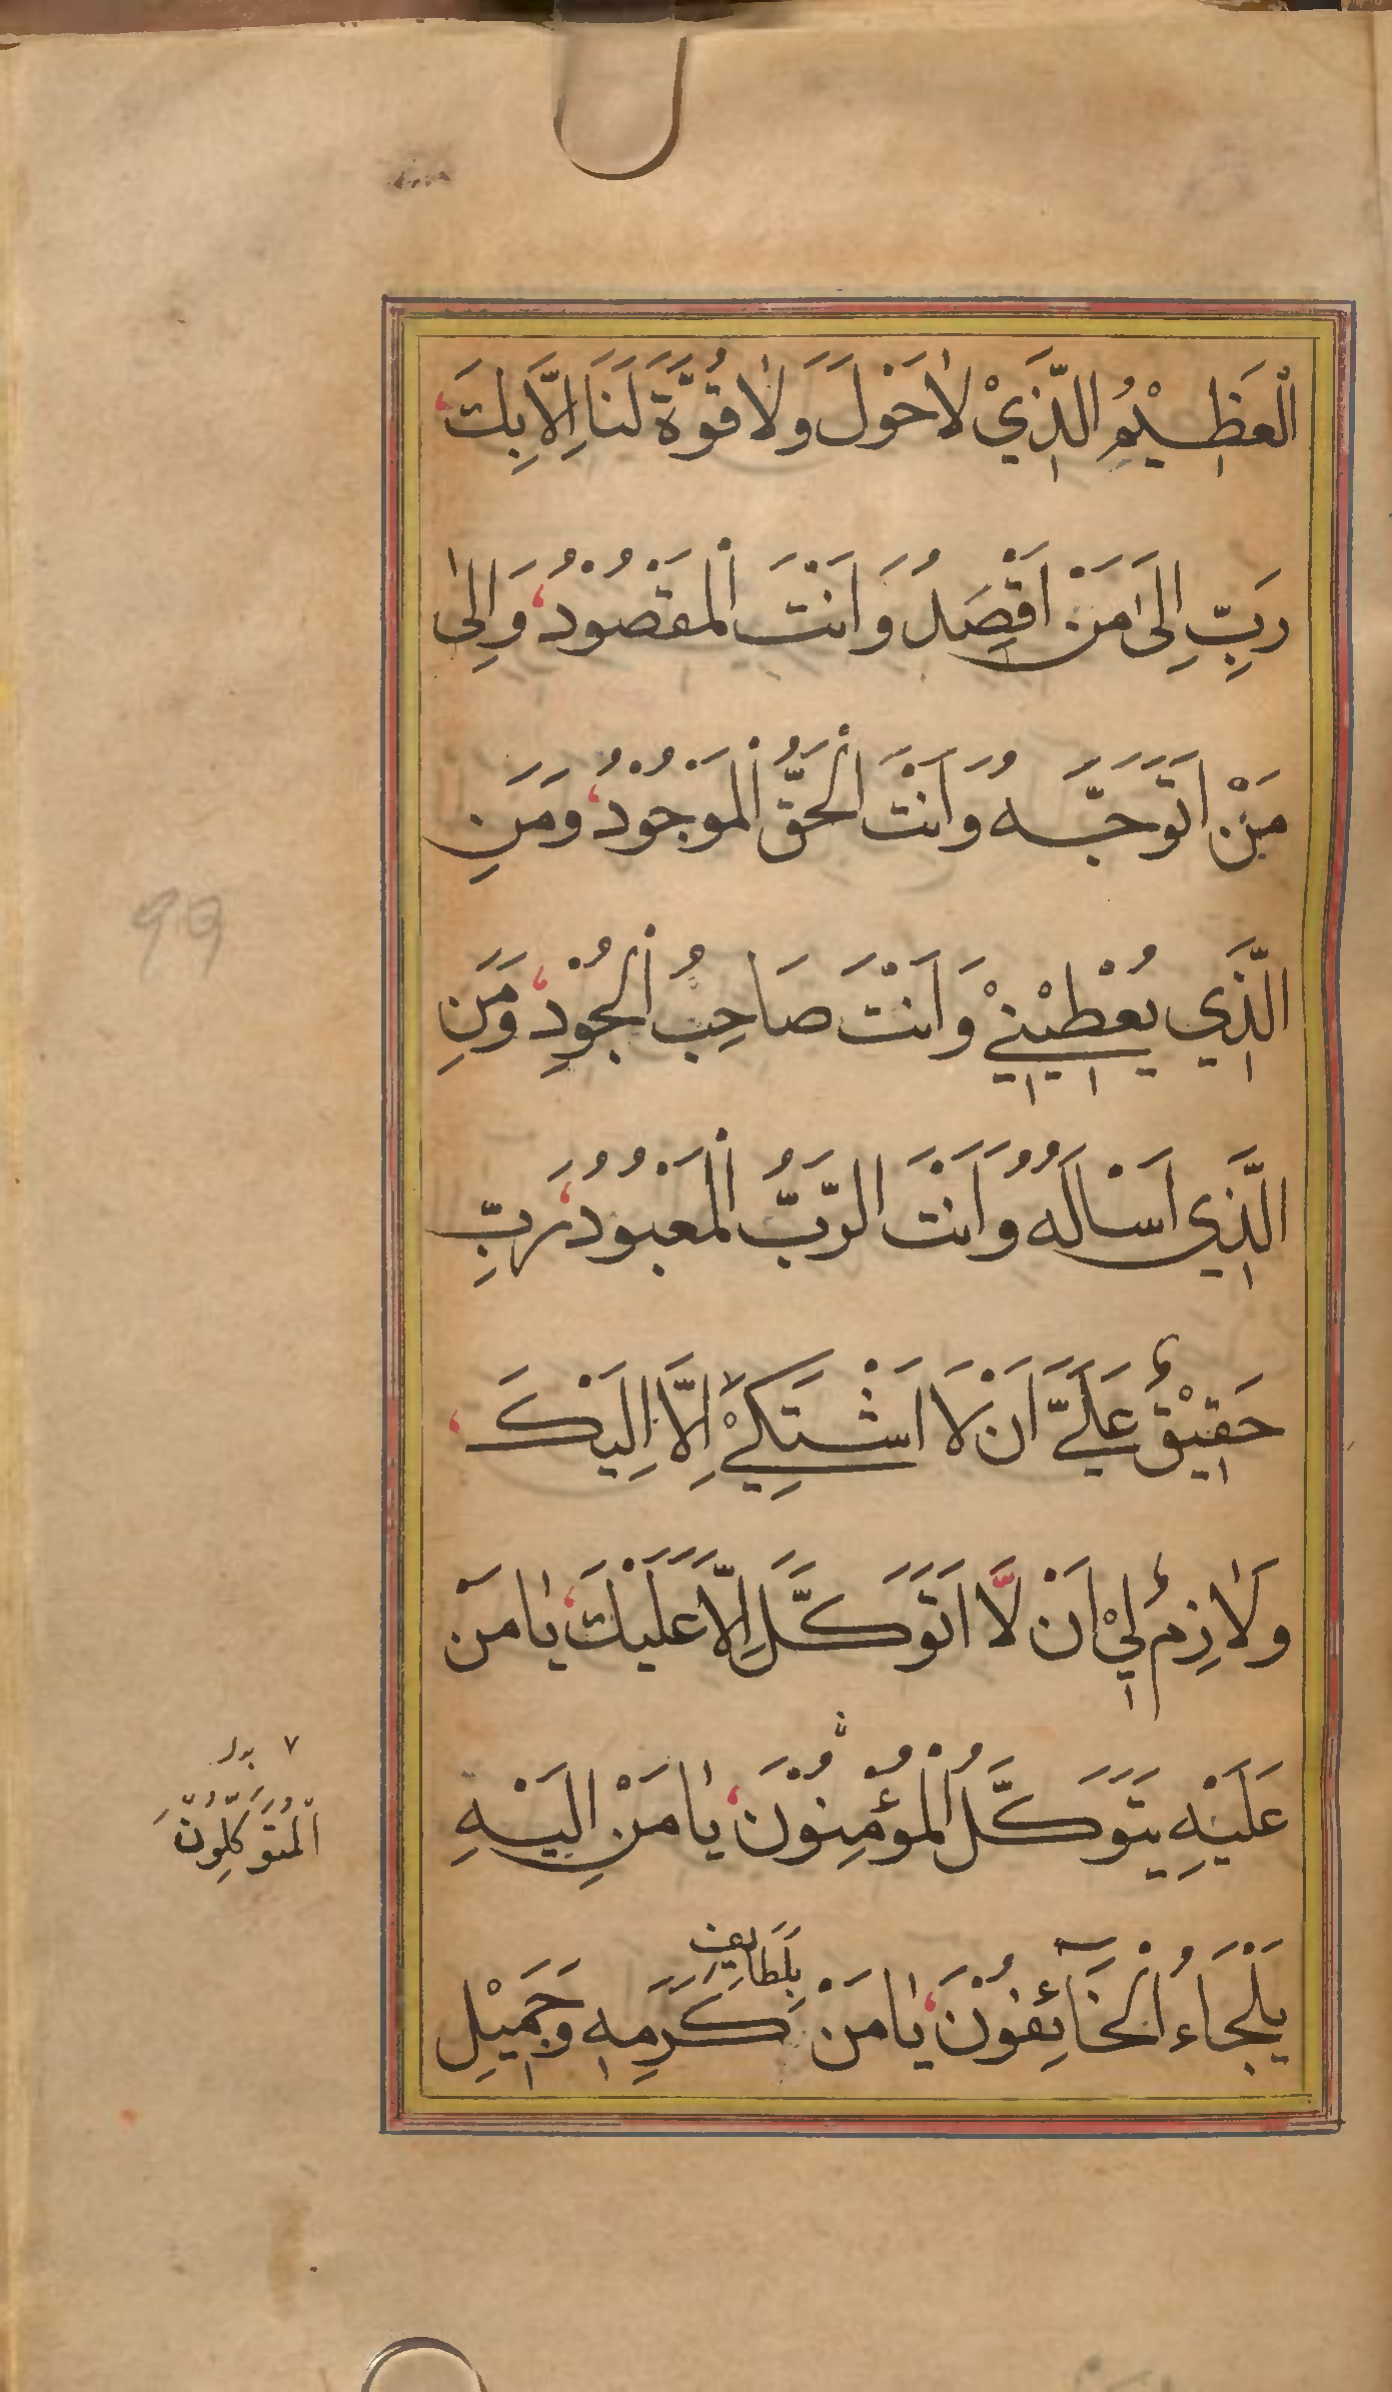 الْعَظِيْمُ الَّذِيْ لَا حَوْلَ وَلَا قُوَّةَ لَنَا اِلَّا بِكَ
رَبِّ اِلٰى مَنْ اَقْصِدُ وَاَنْتَ الْمَقْصُوْدُ وَاِلٰى
مَنْ اَتَوَجَّهُ وَاَنْتَ الْحَقُّ الْمَوْجُوْدُ وَمَنِ
الَّذِي يُعْطِيْنِيْ وَاَنْتَ صَاحِبُ الْجُوْدِ وَمَنِ
الَّذِي اَسْاَلُهُ وَاَنْتَ الرَّبُّ الْمَعْبُوْدُ رَبِّ
حَقِيْقٌ عَلَيَّ اَنْ لَا اَشْتَكِيْ اِلَّا اِلَيْكَ
وَلَازِمٌ لِيْ اَنْ لَّا اَتَوَكَّلَ اِلَّا عَلَيْكَ يَا مَنْ
عَلَيْهِ يَتَوَكَّلُ الْمُؤْمِنُوْنَ يَا مَنْ اِلَيْهِ
٧ بدل
الْمُتَوَكِّلُوْنَ
يَلْجَاءُ الْخَآئِفُوْنَ يَا مَنْ بِلَطَايِفِ كَرَمِهِ وَجَمِيْلِ
99